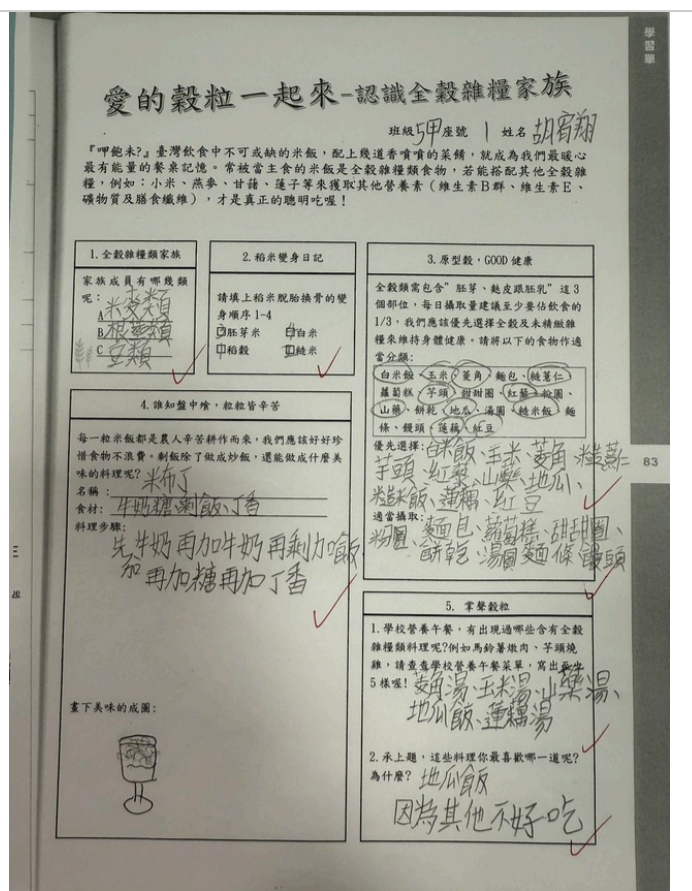 學習單
愛的穀粒一起來-認識全穀雜糧家族
班級5甲座號 1 姓名胡宥翔
『呷飽未?』臺灣飲食中不可或缺的米飯,配上幾道香噴噴的菜餚,就成為我們最暖心
最有能量的餐桌記憶。常被當主食的米飯是全穀雜糧類食物,若能搭配其他全穀雜
糧,例如:小米、燕麥、甘藷、蓮子等來獲取其他營養素(維生素B群、維生素E、
礦物質及膳食纖維),才是真正的聰明吃喔!
1.全穀雜糧類家族
家族成員有哪幾類
呢:
A米麥類
B.根莖類
C豆類
2.稻米變身日記
請填上稻米脫胎換骨的變
身順序1-4
胚芽米 白米
稻穀 糙米
3.原型穀,GOOD健康
全穀類需包含"胚芽、麩皮跟胚乳"這3
個部位,每日攝取量建議至少要佔飲食的
1/3,我們應該優先選擇全穀及未精緻雜
糧來維持身體健康。請將以下的食物作適
當分類:
白米飯、玉米、菱角、麵包、糙薏仁
蘿蔔糕、芋頭、甜甜圈、紅藜、粉圓、
山藥、餅乾、地瓜、湯圓、糙米飯、麵
條、饅頭、蓮藕、紅豆
優先選擇:白米飯、玉米、菱角、糙薏仁
芋頭、紅藜、山藥、地瓜、
糙米飯、蓮藕、紅豆
適當攝取:
粉圓、麵包、蘿蔔糕、甜甜圈、
餅乾、湯圓麵條饅頭
4.誰知盤中飧,粒粒皆辛苦
每一粒米飯都是農人辛苦耕作而來,我們應該好好珍
惜食物不浪費。剩飯除了做成炒飯,還能做成什麼美
味的料理呢?
名稱:米布丁
食材:牛奶糖剩飯、丁香
料理步驟:
先牛奶再加牛奶再剩加飯
加再加糖再加丁香
畫下美味的成圖:
5. 掌聲穀粒
1.學校營養午餐,有出現過哪些含有全穀
雜糧類料理呢?例如馬鈴薯燉肉、芋頭燒
雞,請查查學校營養午餐菜單,寫出
5樣喔!菱角湯、玉米湯、山藥湯、
地瓜飯、蓮藕湯
2.承上題,這些料理你最喜歡哪一道呢?
為什麼?地瓜飯
因為其他不好吃
83